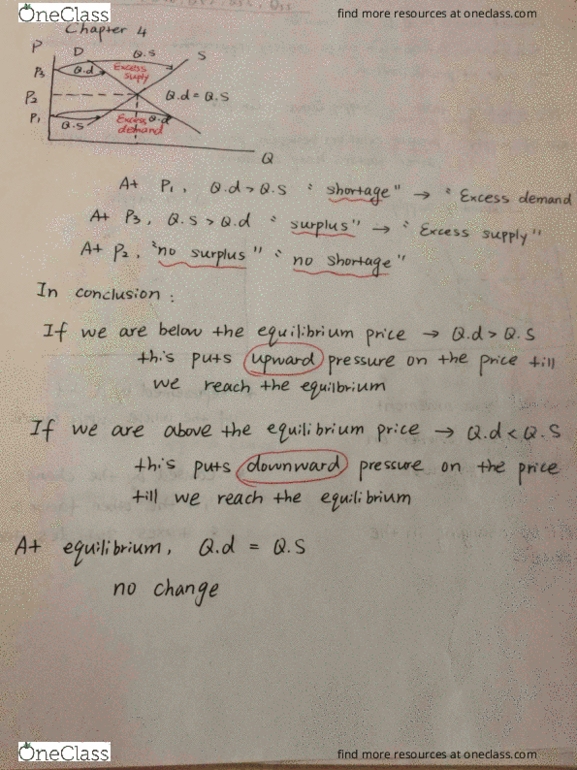 OneClass
find more resources at oneclass.com
Chapter 4
P
D
Q.S
S
P3
Q.d
Excess
suply
P2
Q.d = Q.S
P1
Q.S
Excess
Q.d
demand
Q
At P1, Q.d > Q.S " shortage" → " Excess demand
At P3, Q.S > Q.d " surplus" → " Excess supply"
At P2, "no surplus" " no shortage"
In conclusion :
If we are below the equilibrium price → Q.d > Q.S
this puts upward pressure on the price till
we reach the equilbrium
If we are above the equilibrium price → Q.d < Q.S
this puts downward pressure on the price
till we reach the equilibrium
At equilibrium, Q.d = Q.S
no change
OneClass
find more resources at oneclass.com